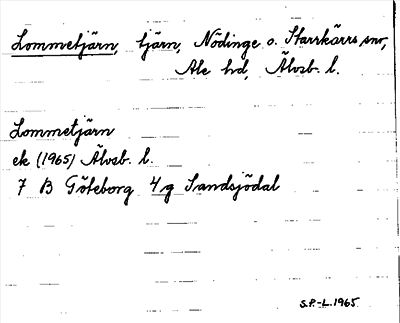 Lommetjärn, tjärn, Nödinge o. Starrkärrs snr,
Ale hd, Älvsb. l.
Lommetjärn
ek (1965) Älvsb. l.
7 B Göteborg 4g Sandsjödal
S.P.-L. 1965